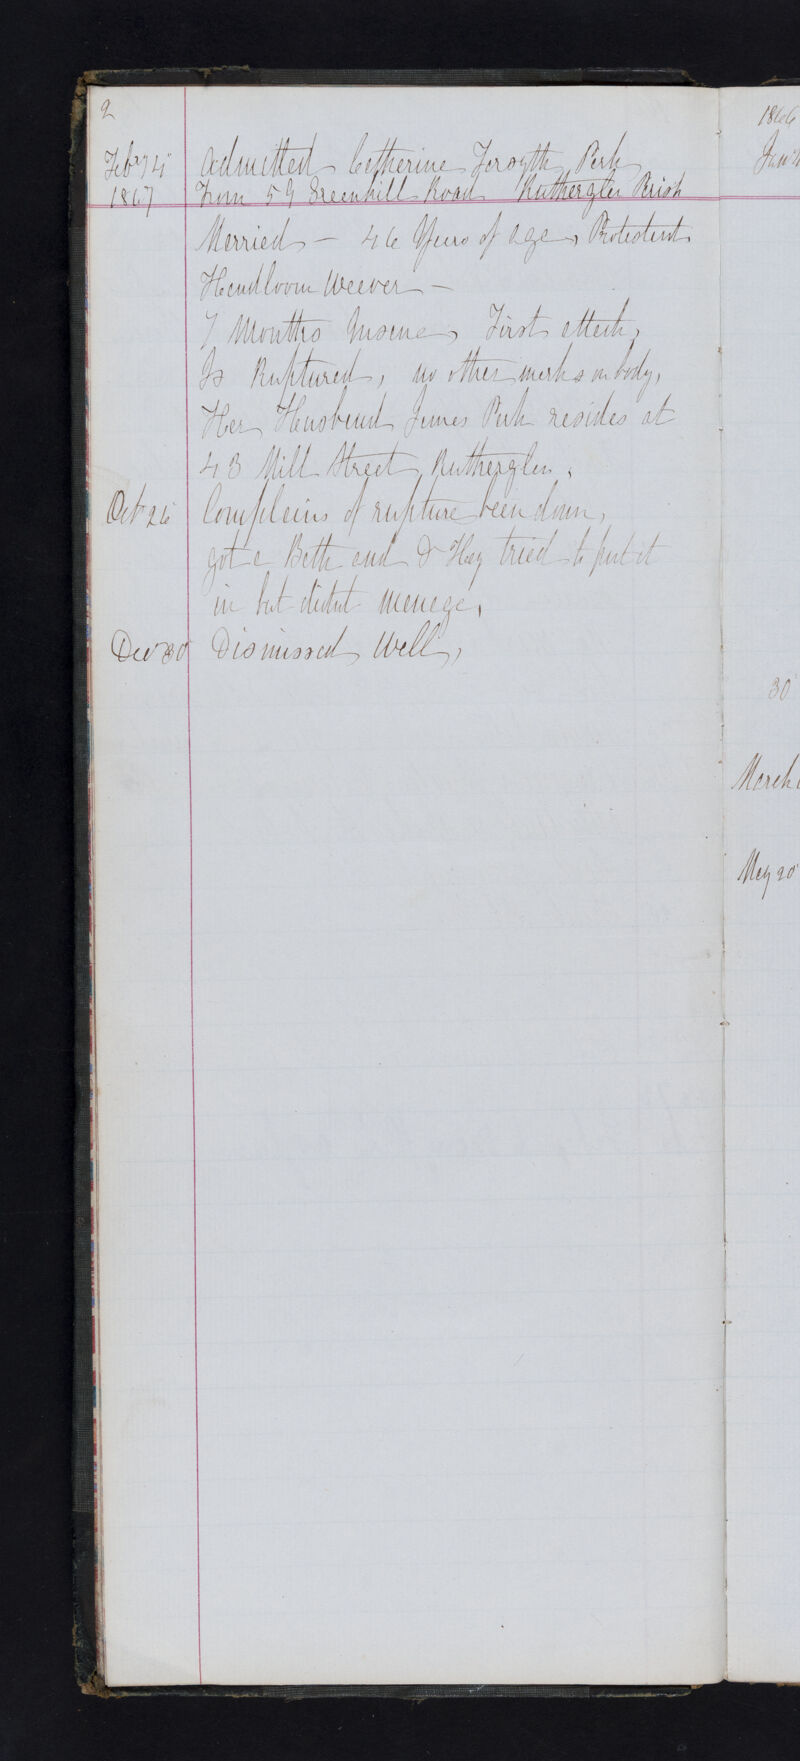 2
Feby 14 Admitted Catherine Forsyth Park
1867 From 59 Greenhill Road Rutherglen Parish
Married – 46 Years of age, Protestant
Handloom Weaver –
7 Months Insane, First attack,
Is Ruptured, no other marks on body,
Her Husband James Park resides at
43 Mill Street, Rutherglen.
Octr 26 Complains of rupture been down,
got a Bath and Dr Hay tried to put it
in but didnt manage,
Decr 30 Dismissed Well,
1866
30
March
May 20